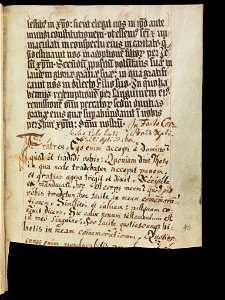 iesu in xpo: sicut elegit nos in ipo ante
mundi constitutionem: ut essem sci et im
maculati in conspectu eius in caritate. Q
destinavit nos in adoptione filior per
xpm. Secundu propositu voluntatis sue in
laudem glorie gratie sue: in qua gratifi
cavit nos in dilecto filio suo. In quo ha
bemus redemptionem per sanguinem ei
remissione pccator secundu divitias
gratie eius que superabundavit in nobis
per xpm dnm nostru
In festo Cor
poris
Fratres: Ego enim accepi a Domino
quod et tradidi vobis: Quoniam Dns Jhesus
in qua nocte tradebatur accepit panem,
et gratias agens fregit et dixit, Accipite
et manducate, hoc est corpus meum: quod pro
vobis tradetur hoc facite in meam commemora
tionem. Similiter et calicem: postquam coe
navit dicens, Hic calix novum testamentum est
in meo sanguine, hoc facite quotiescunqz bi
betis in meam commemorationem, Quoties
cunqz enim manducabitis
90